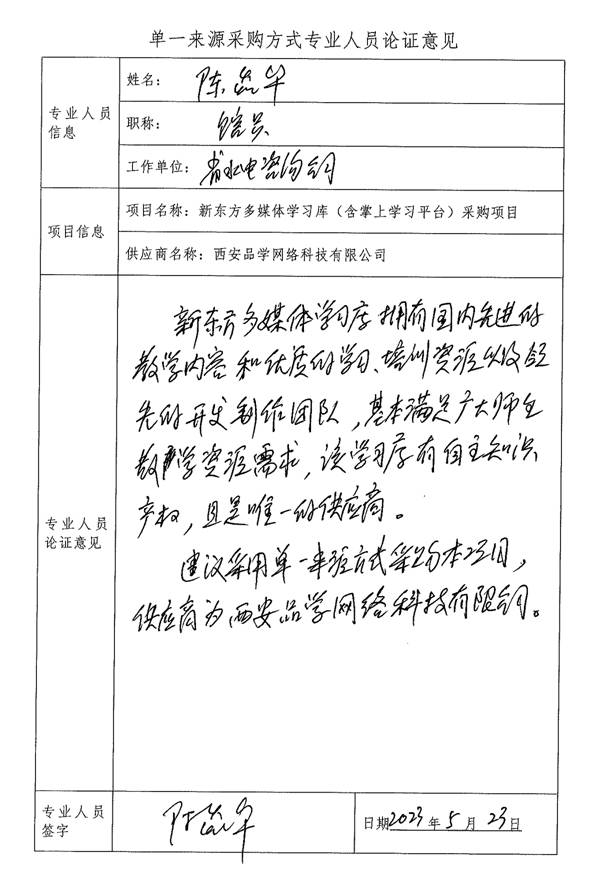 单一来源采购方式专业人员论证意见
专业人员
信息
姓名：陈益华
职称：馆员
工作单位：省水电咨询公司
项目信息
项目名称：新东方多媒体学习库（含掌上学习平台）采购项目
供应商名称：西安品学网络科技有限公司
专业人员
论证意见
新东方多媒体学习库拥有国内先进的
教学内容和优质的学习、培训资源以及领
先的开发制作团队，基本满足广大师生
教学资源需求，该学习库有自主知识
产权，且是唯一的供应商。
建议采用单一来源方式采购本项目，
供应商为西安品学网络科技有限公司。
专业人员
签字
日期2023年5月23日